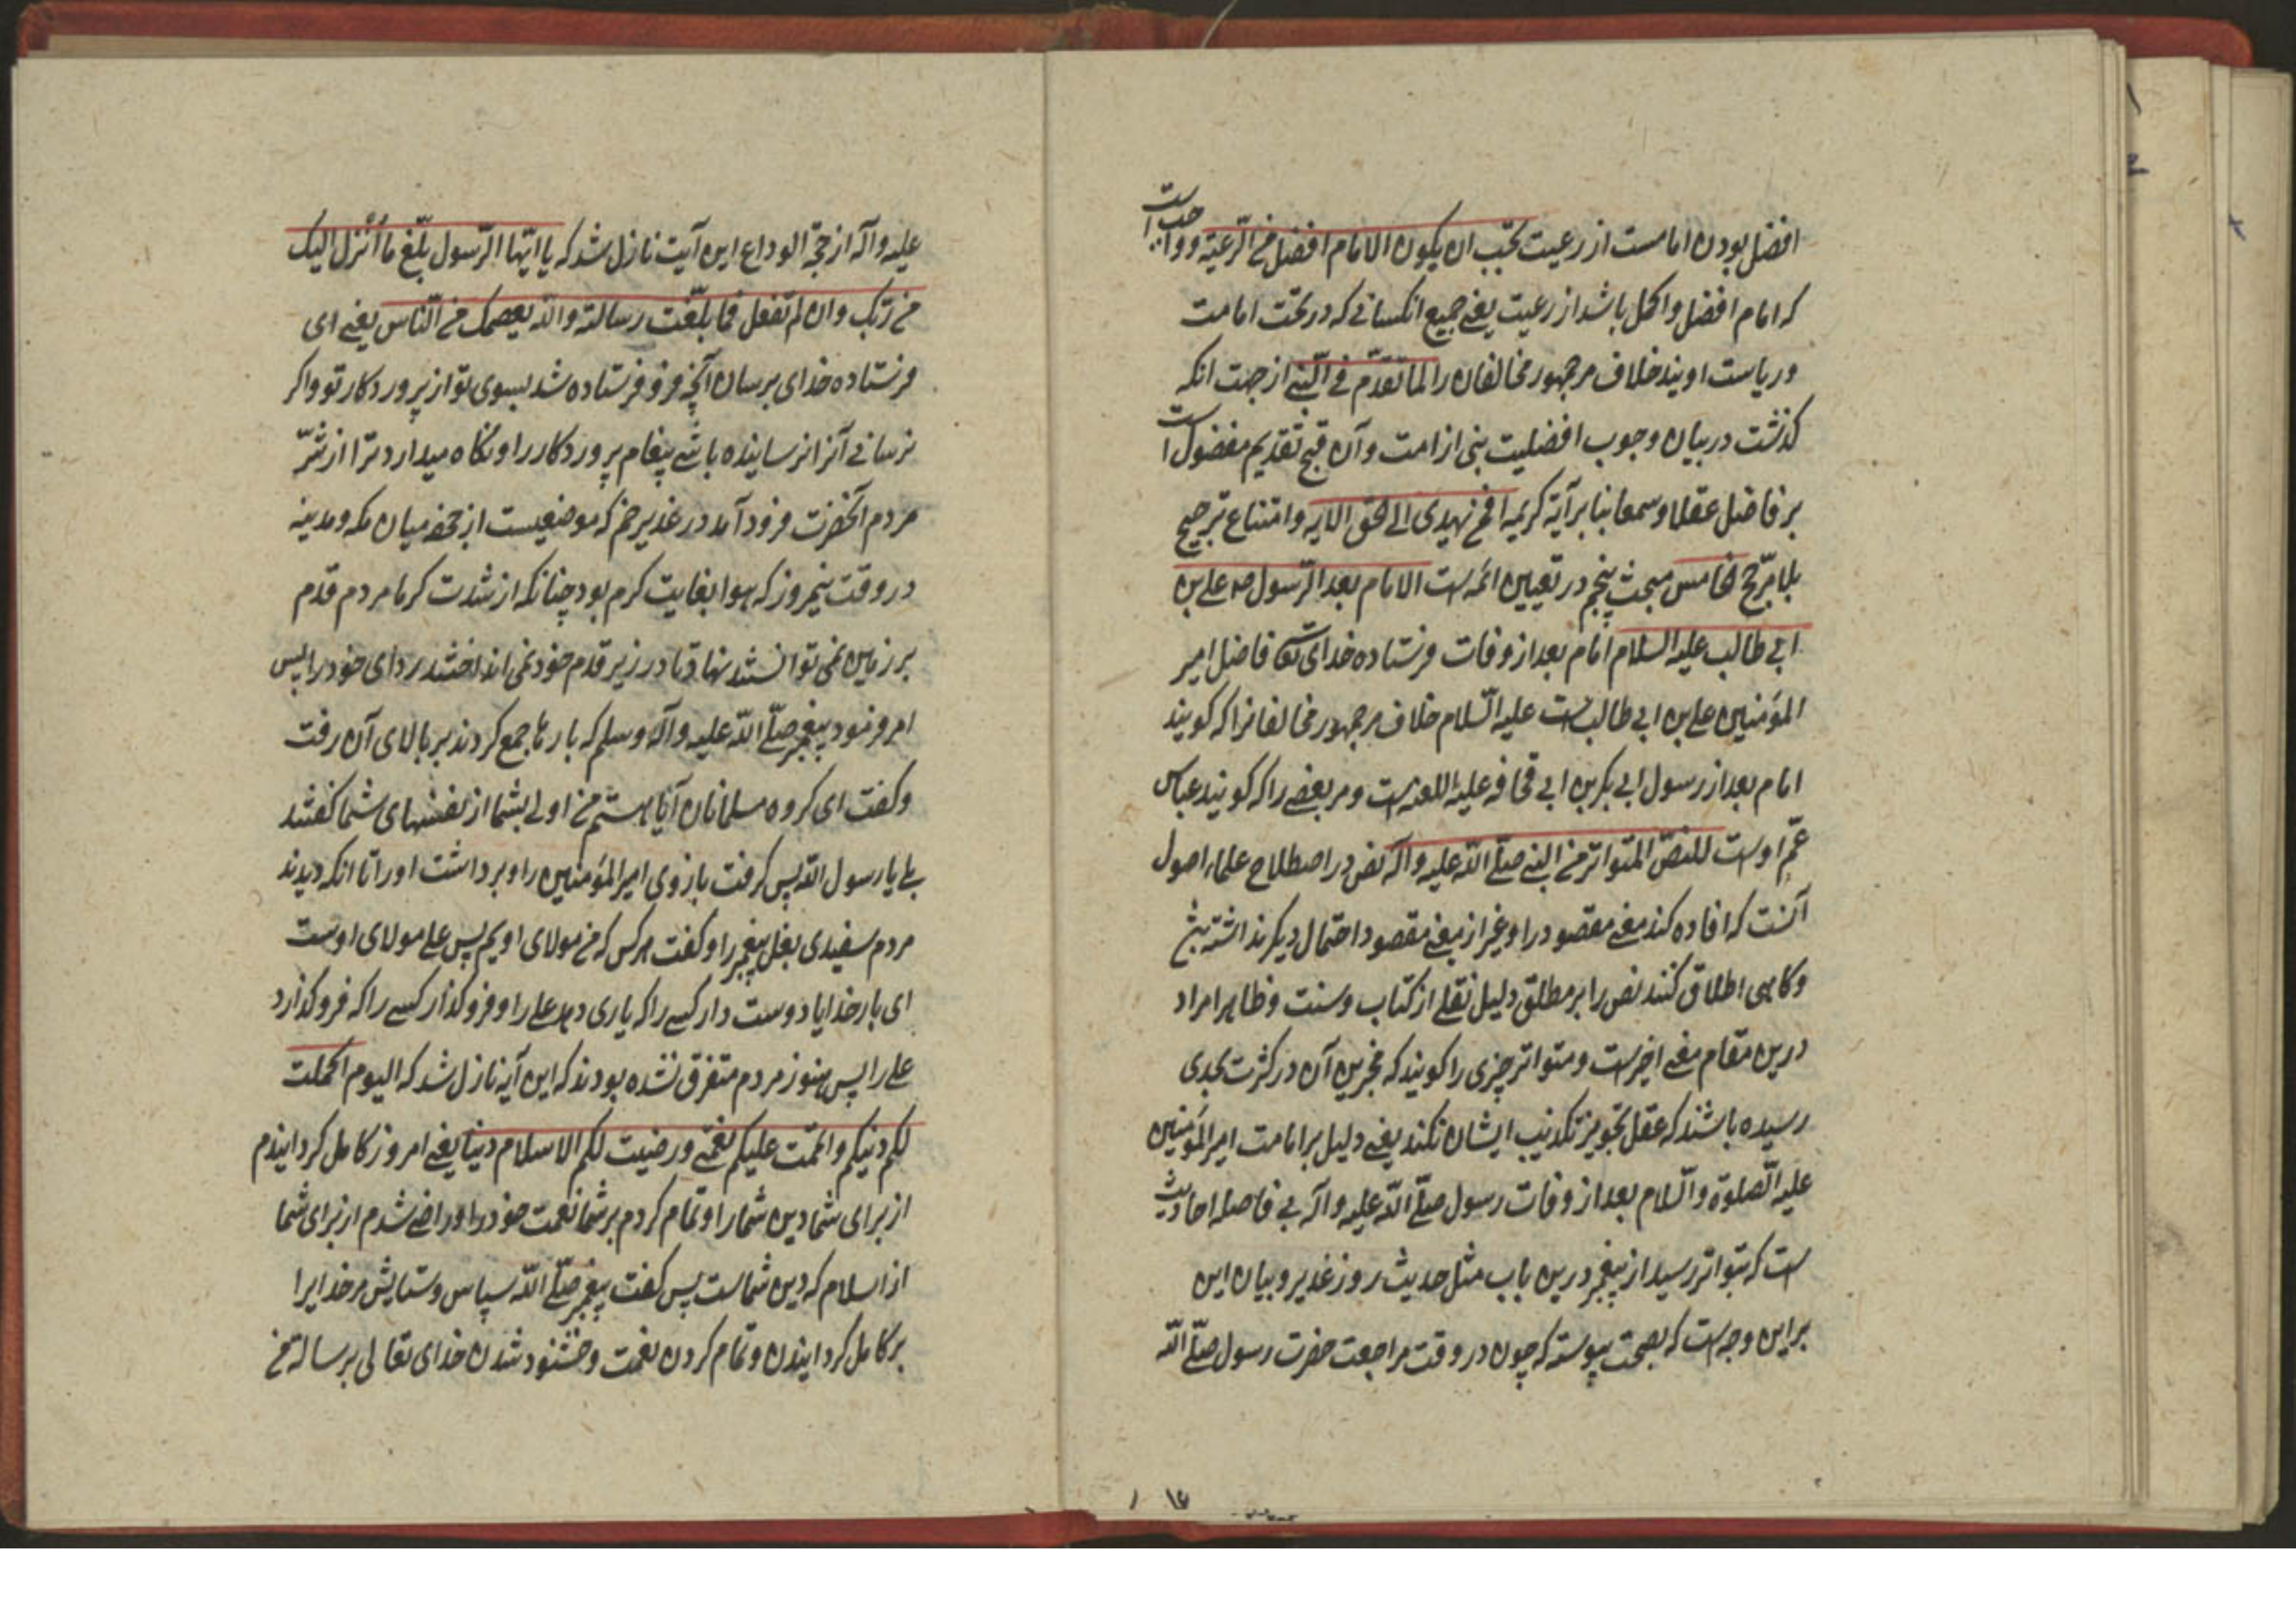 افضل بودن امامست از رعیت یجب ان یکون الامام افضل من الرعیة و واجب است
که امام افضل و اکمل باشد از رعیت یعنی جمیع انکسانی که در تحت امامت
و ریاست اویند خلاف مر جمهور مخالفان را لما تقدّم فی النّبی از جهت انکه
کذشت در بیان وجوب افضلیت نبی از امت و آن قبح تقدیم مفضول است
بر فاضل عقلا و سمعا بنا بر آیة کریمه افمن یهدی الی الحق الایه و امتناع ترجیح
بلا مرّجح الخامس مبحث پنجم در تعیین ائمه است الامام بعد الرّسول ص علی بن
ابی طالب علیه السلام امام بعد از وفات فرستاده خدای تعالی فاضل امیر
المؤمنین علی بن ابی طالب است علیه السّلام خلاف مر جمهور مخالفانرا که کویند
امام بعد از رسول ابی بکر بن ابی قحافه علیه اللعنه است و مر بعضی را که کویند عباس
عمّ اوست للنصّ المتواتر من النبی صلّی اللّه علیه و آله نص در اصطلاح علماء اصول
آنست که افاده کند معنی مقصود را و غیر از معنی مقصود احتمال دیکر نداشته باشد
و کاهی اطلاق کنند نص را بر مطلق دلیل نقلی از کتاب و سنت و ظاهرا مراد
درین مقام معنی اخیرست و متواتر چیزی را کویند که مخبرین آن در کثرت بحدی
رسیده باشند که عقل تجویز تکذیب ایشان نکند یعنی دلیل بر امامت امیر المؤمنین
علیه الصّلوة و السّلام بعد از وفات رسول صلّی اللّه علیه و آله بی فاصله احادیث
ست که بتواتر رسید از پیغمبر درین باب مثل حدیث روز غدیر و بیان این
براین وجه است که بصحت پیوسته که چون در وقت مراجعت حضرت رسول صلّی اللّه
علیه و آله از حجّة الوداع این آیت نازل شد که یا ایّها الرّسول بلّغ ما اُنزل الیک
من ربّک و ان لم تفعل فما بلّغت رسالته و اللّه یعصمک من النّاس یعنی ای
فرستاده خدای برسان آنچه فرو فرستاده شد بسوی تو از پروردکار تو و اکر
نرسانی آنرا نرسانیده باشی پیغام پروردکار را و نکاه میدارد ترا از شرّ
مردم آنحضرت فرود آمد در غدیر خم که موضعیست از جحفه میان مکه و مدینه
در وقت نیمروز که هوا بغایت کرم بود چنانکه از شدت کرما مردم قدم
بر زمین نمی توانستند نهاد تا در زیر قدم خود نمی انداختند ردای خود را پس
امر فرمود پیغمبر صلّی اللّه علیه و آله و سلم که بارها جمع کردند بر بالای آن رفت
و کفت ای کروه مسلمانان آیا هستم من اولی بشما از نفسهای شما کفتند
بلی یا رسول اللّه پس کرفت بازوی امیر المؤمنین را و برداشت او را تا انکه دیدند
مردم سفیدی بغل پیغمبر را و کفت هر کس که من مولای اویم پس علی مولای اوست
ای بار خدایا دوست دار کسی را که یاری دهد علی را و فرو کذار کسی را که فرو کذارد
علی را پس هنوز مردم متفرق نشده بودند که این آیه نازل شد که الیوم اکملت
لکم دینکم و اتممت علیکم نعمتی و رضیت لکم الاسلام دینا یعنی امروز کامل کردانیدم
از برای شما دین شما را و تمام کردم بر شما نعمت خود را و راضی شدم از برای شما
از اسلام که دین شماست پس کفت پیغمبر صلّی اللّه سپاس و ستایش مر خدایرا
بر کامل کردانیدن و تمام کردن نعمت و خشنود شدن خدای تعالی برسالة من